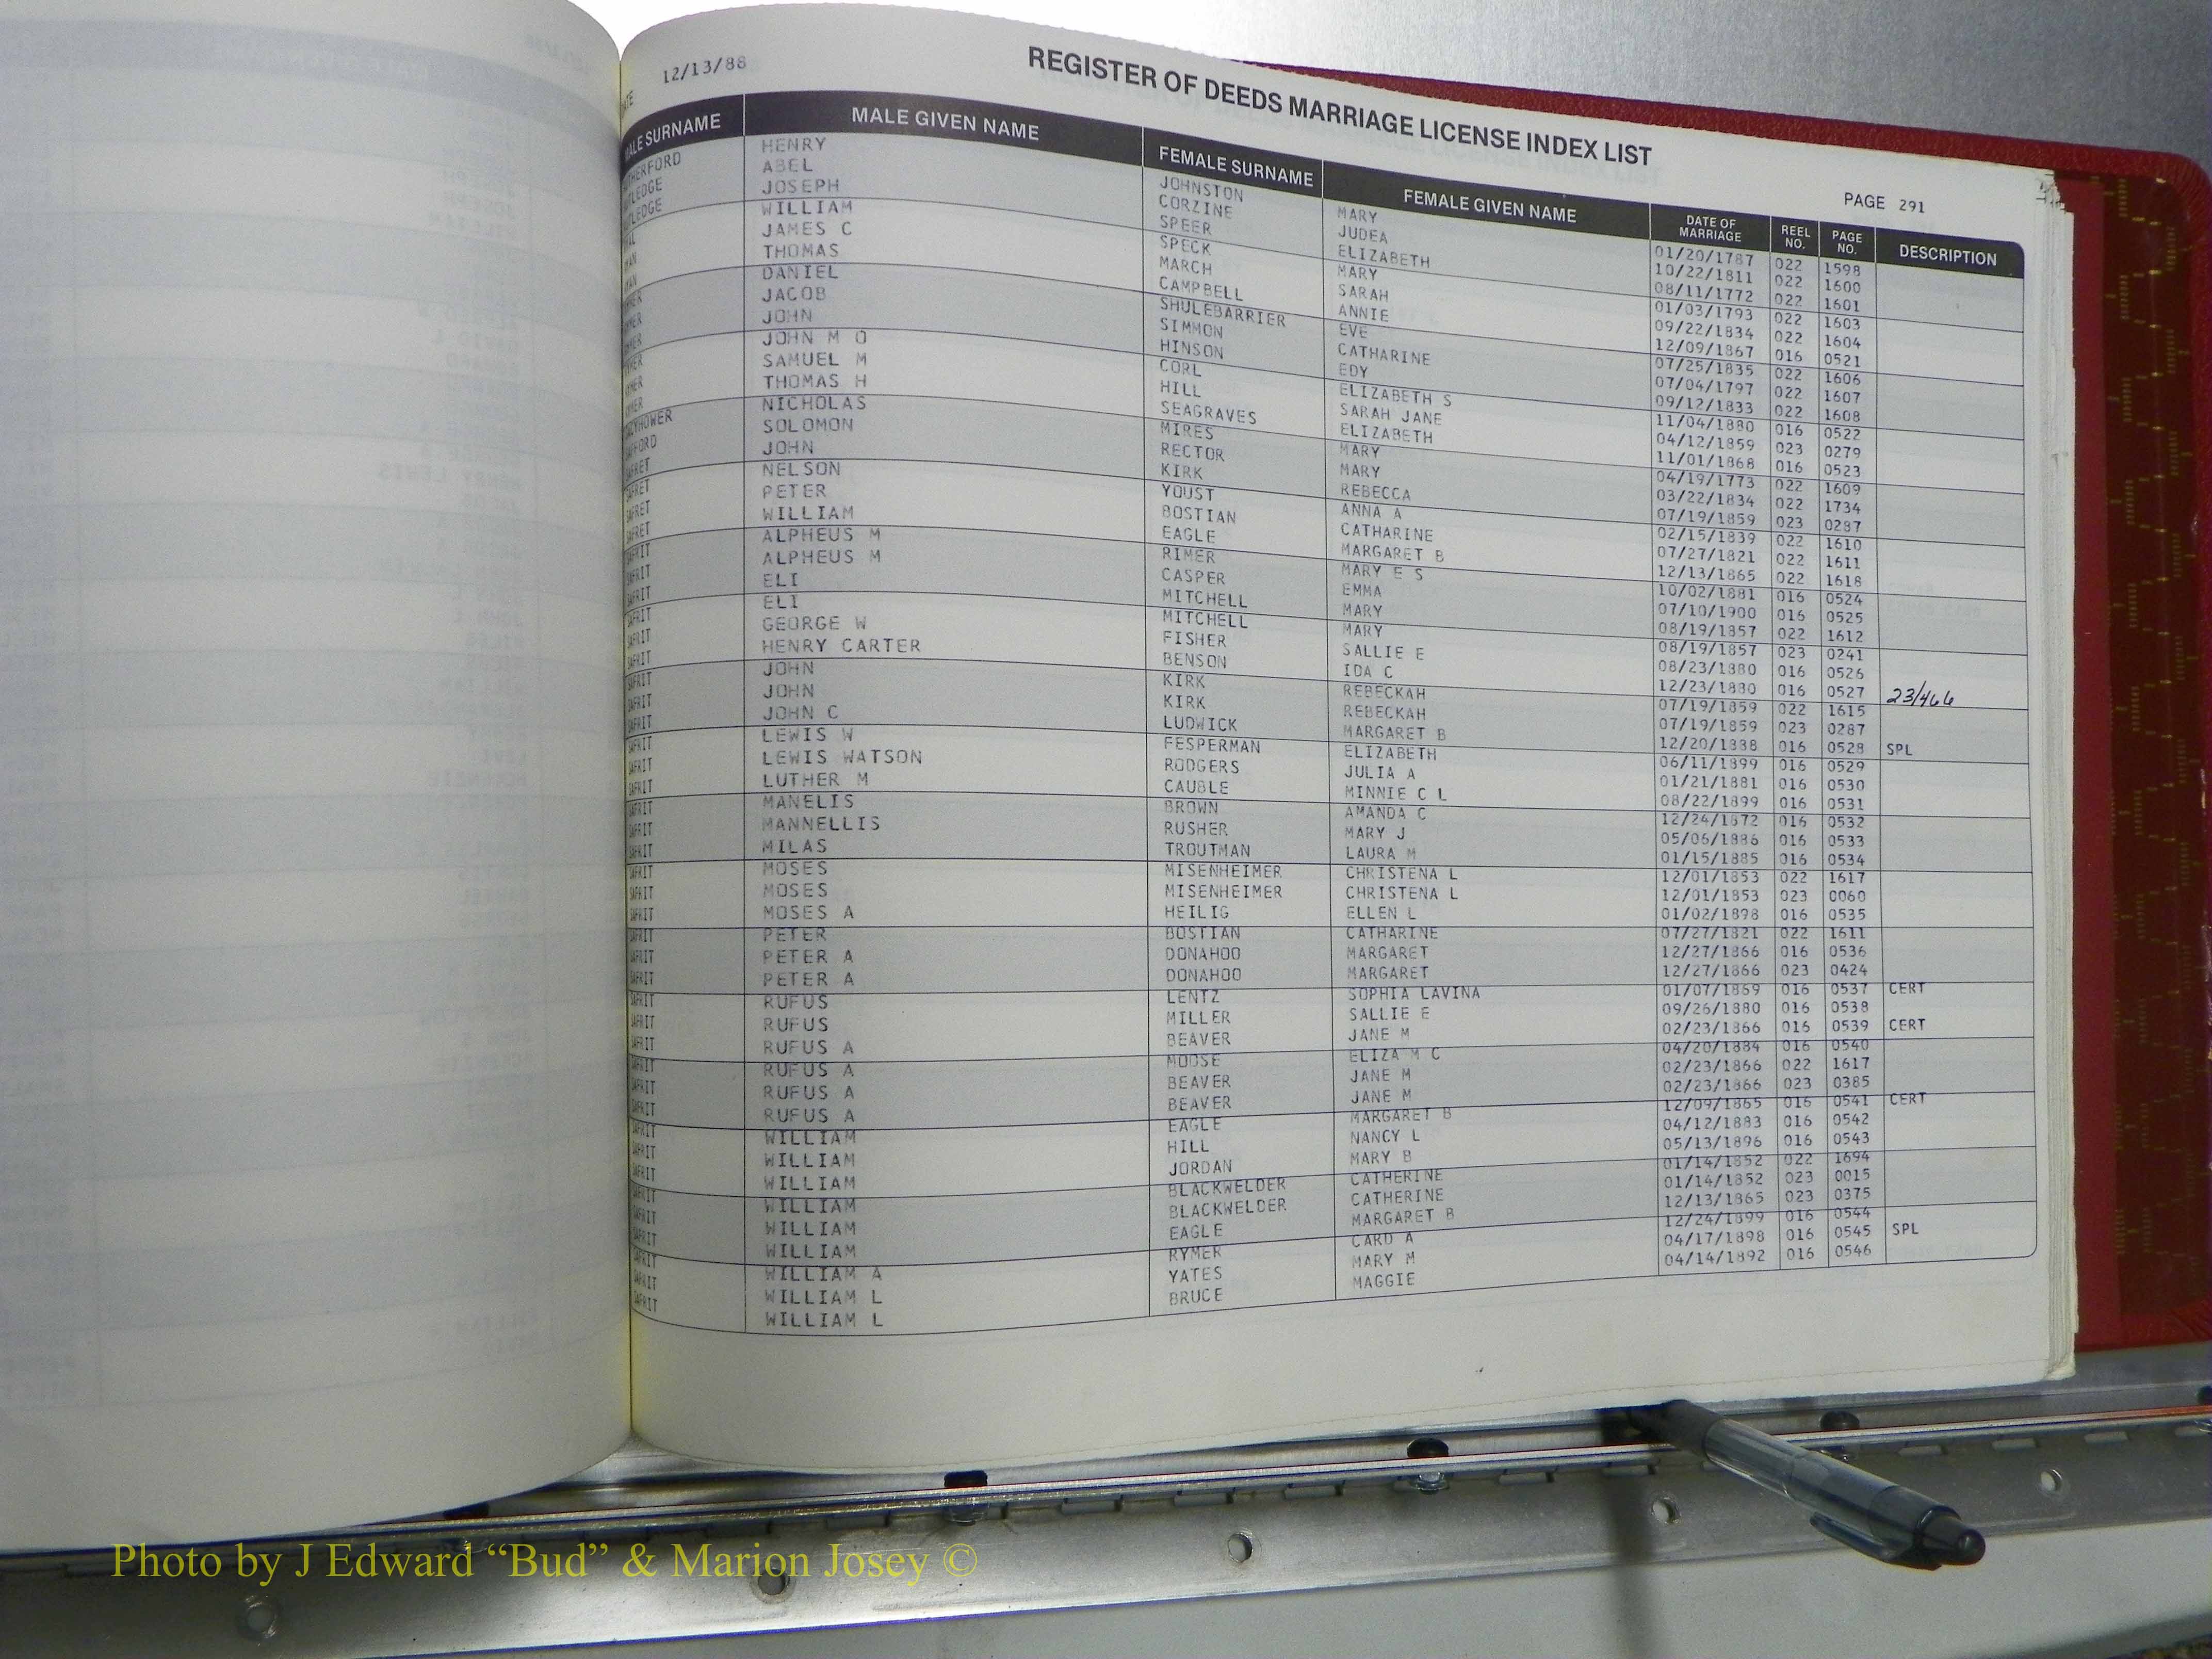 DATE 12/13/88
REGISTER OF DEEDS MARRIAGE LICENSE INDEX LIST
PAGE 291
MALE SURNAME MALE GIVEN NAME FEMALE SURNAME FEMALE GIVEN NAME DATE OF MARRIAGE REEL NO. PAGE NO. DESCRIPTION
HERFORD HENRY JOHNSTON MARY 01/20/1787 022 1598
TLEDGE ABEL CORZINE JUDEA 10/22/1811 022 1600
TLEDGE JOSEPH SPEER ELIZABETH 08/11/1772 022 1601
WILLIAM SPECK MARY 01/03/1793 022 1603
JAMES C MARCH SARAH 09/22/1834 022 1604
THOMAS CAMPBELL ANNIE 12/09/1867 016 0521
DANIEL SHULEBARRIER EVE 07/25/1835 022 1606
JACOB SIMMON CATHARINE 07/04/1797 022 1607
JOHN HINSON EDY 09/12/1833 022 1608
JOHN M O CORL ELIZABETH S 11/04/1880 016 0522
SAMUEL M HILL SARAH JANE 04/12/1859 023 0279
THOMAS H SEAGRAVES ELIZABETH 11/01/1868 016 0523
NICHOLAS MIRES MARY 04/19/1773 022 1609
SOLOMON RECTOR MARY 03/22/1834 022 1734
SAFRET JOHN KIRK REBECCA 07/19/1859 023 0287
SAFRET NELSON YOUST ANNA A 02/15/1839 022 1610
SAFRET PETER BOSTIAN CATHARINE 07/27/1821 022 1611
SAFRET WILLIAM EAGLE MARGARET B 12/13/1865 022 1618
SAFRIT ALPHEUS M RIMER MARY E S 10/02/1881 016 0524
SAFRIT ALPHEUS M CASPER EMMA 07/10/1900 016 0525
SAFRIT ELI MITCHELL MARY 08/19/1857 022 1612
SAFRIT ELI MITCHELL MARY 08/19/1857 023 0241
SAFRIT GEORGE W FISHER SALLIE E 08/23/1880 016 0526
SAFRIT HENRY CARTER BENSON IDA C 12/23/1880 016 0527 23/466
SAFRIT JOHN KIRK REBECKAH 07/19/1859 022 1615
SAFRIT JOHN KIRK REBECKAH 07/19/1859 023 0287
SAFRIT JOHN C LUDWICK MARGARET B 12/20/1888 016 0528 SPL
SAFRIT LEWIS W FESPERMAN ELIZABETH 06/11/1899 016 0529
SAFRIT LEWIS WATSON RODGERS JULIA A 01/21/1881 016 0530
SAFRIT LUTHER M CAUBLE MINNIE C L 08/22/1899 016 0531
SAFRIT MANELIS BROWN AMANDA C 12/24/1872 016 0532
SAFRIT MANNELLIS RUSHER MARY J 05/06/1886 016 0533
SAFRIT MILAS TROUTMAN LAURA M 01/15/1885 016 0534
SAFRIT MOSES MISENHEIMER CHRISTENA L 12/01/1853 022 1617
SAFRIT MOSES MISENHEIMER CHRISTENA L 12/01/1853 023 0060
SAFRIT MOSES A HEILIG ELLEN L 01/02/1898 016 0535
SAFRIT PETER BOSTIAN CATHARINE 07/27/1821 022 1611
SAFRIT PETER A DONAHOO MARGARET 12/27/1866 016 0536
SAFRIT PETER A DONAHOO MARGARET 12/27/1866 023 0424
SAFRIT RUFUS LENTZ SOPHIA LAVINA 01/07/1869 016 0537 CERT
SAFRIT RUFUS MILLER SALLIE E 09/26/1880 016 0538
SAFRIT RUFUS A BEAVER JANE M 02/23/1866 016 0539 CERT
SAFRIT RUFUS A MOOSE ELIZA M C 04/20/1884 016 0540
SAFRIT RUFUS A BEAVER JANE M 02/23/1866 022 1617
SAFRIT RUFUS A BEAVER JANE M 02/23/1866 023 0385
SAFRIT WILLIAM EAGLE MARGARET B 12/09/1865 016 0541 CERT
SAFRIT WILLIAM HILL NANCY L 04/12/1883 016 0542
SAFRIT WILLIAM JORDAN MARY B 05/13/1896 016 0543
SAFRIT WILLIAM BLACKWELDER CATHERINE 01/14/1852 022 1694
SAFRIT WILLIAM BLACKWELDER CATHERINE 01/14/1852 023 0015
SAFRIT WILLIAM EAGLE MARGARET B 12/13/1865 023 0375
SAFRIT WILLIAM A RYMER CARD A 12/24/1899 016 0544
SAFRIT WILLIAM L YATES MARY M 04/17/1898 016 0545 SPL
SAFRIT WILLIAM L BRUCE MAGGIE 04/14/1892 016 0546
Photo by J Edward “Bud” & Marion Josey ©